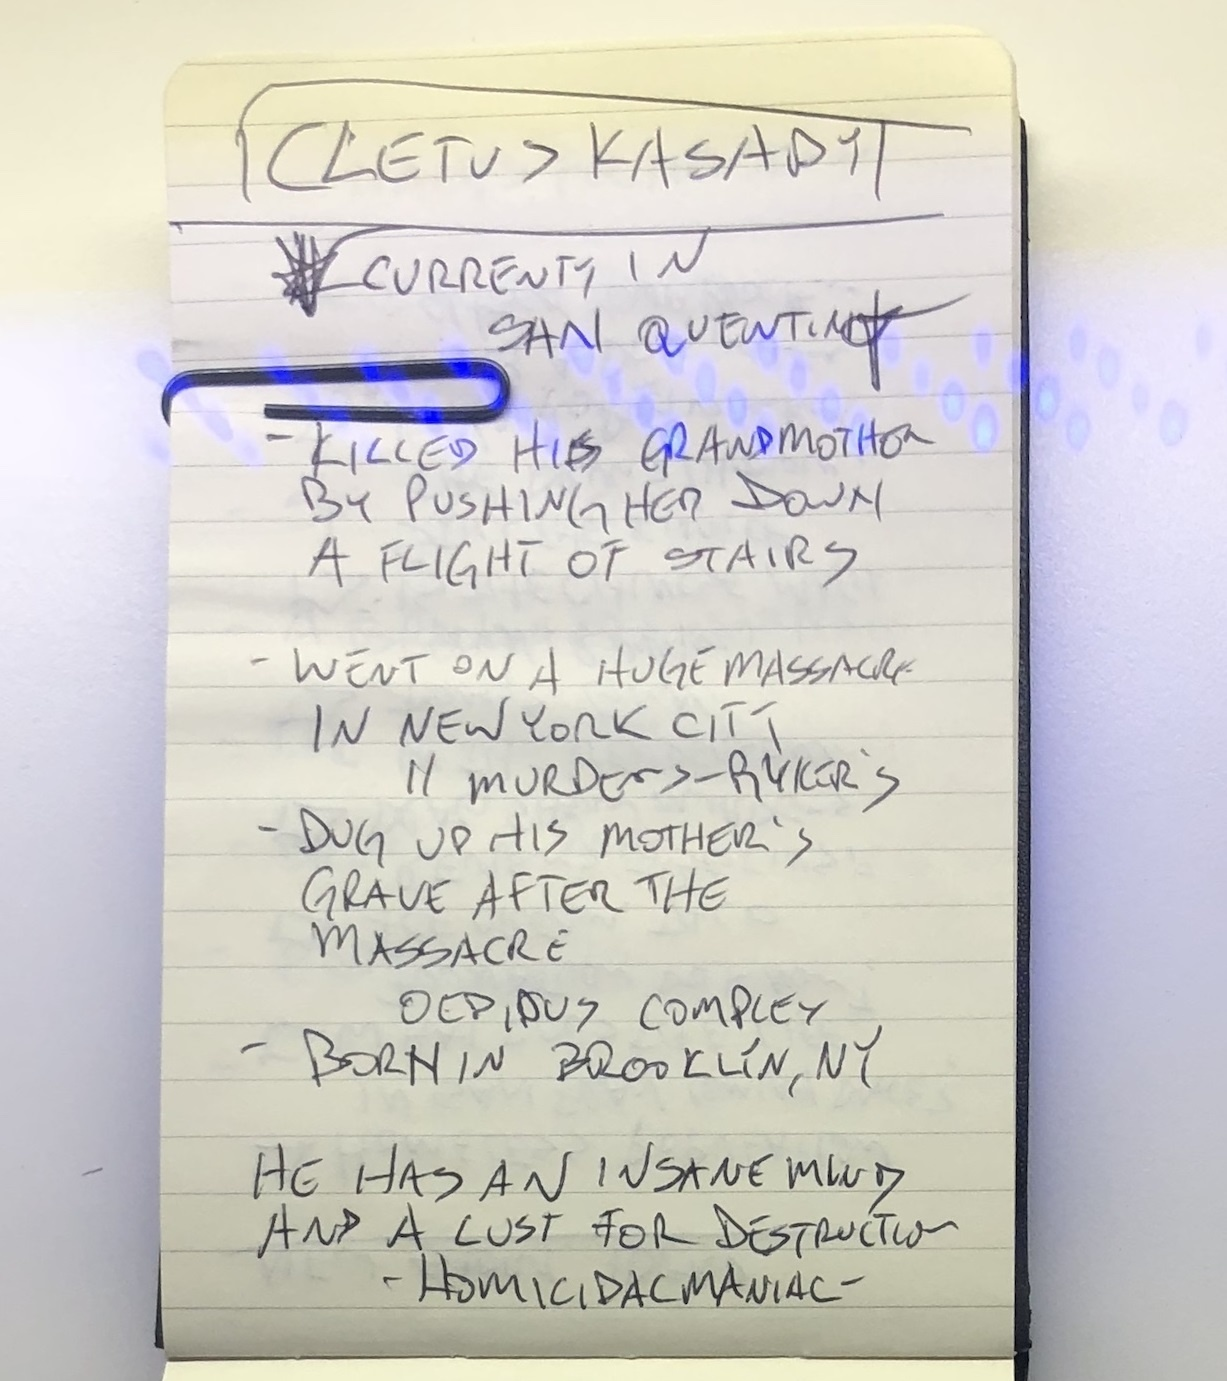 CLETUS KASADY
CURRENTY IN
SAN QUENTIN
- KILLED HIS GRANDMOTHER
BY PUSHING HER DOWN
A FLIGHT OF STAIRS
- WENT ON A HUGE MASSACRE
IN NEW YORK CITY
11 MURDERS - RYKER'S
- DUG UP HIS MOTHER'S
GRAVE AFTER THE
MASSACRE
OEDIPUS COMPLEX
- BORN IN BROOKLIN, NY
HE HAS AN INSANE MIND
AND A LUST FOR DESTRUCTION
- HOMICIDAL MANIAC -